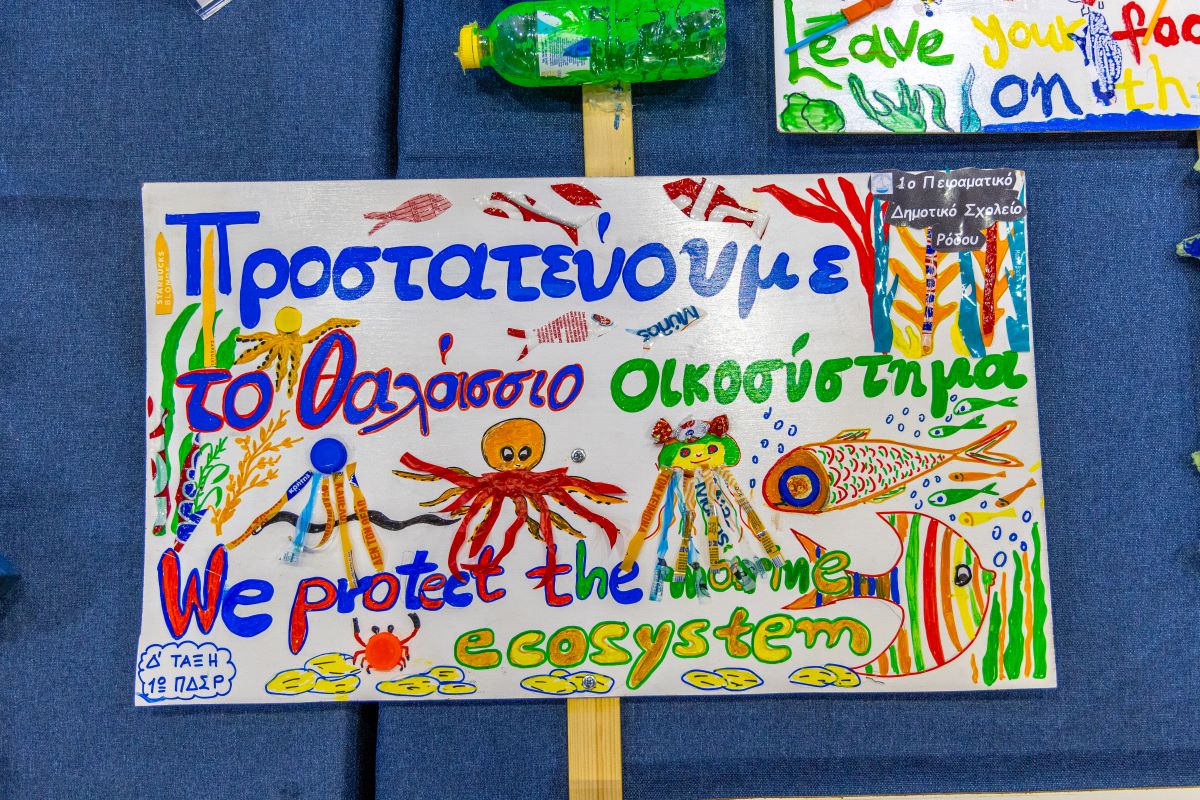 Leave your
on th
1ο Πειραματικό
Δημοτικό Σχολείο
Ρόδου
Προστατεύουμε
STARBUCKS
Μύθος
το θαλάσσιο οικοσύστημα
We protect the marine
ecosystem
Δ' ΤΑΞΗ
1ο ΠΔΣΡ